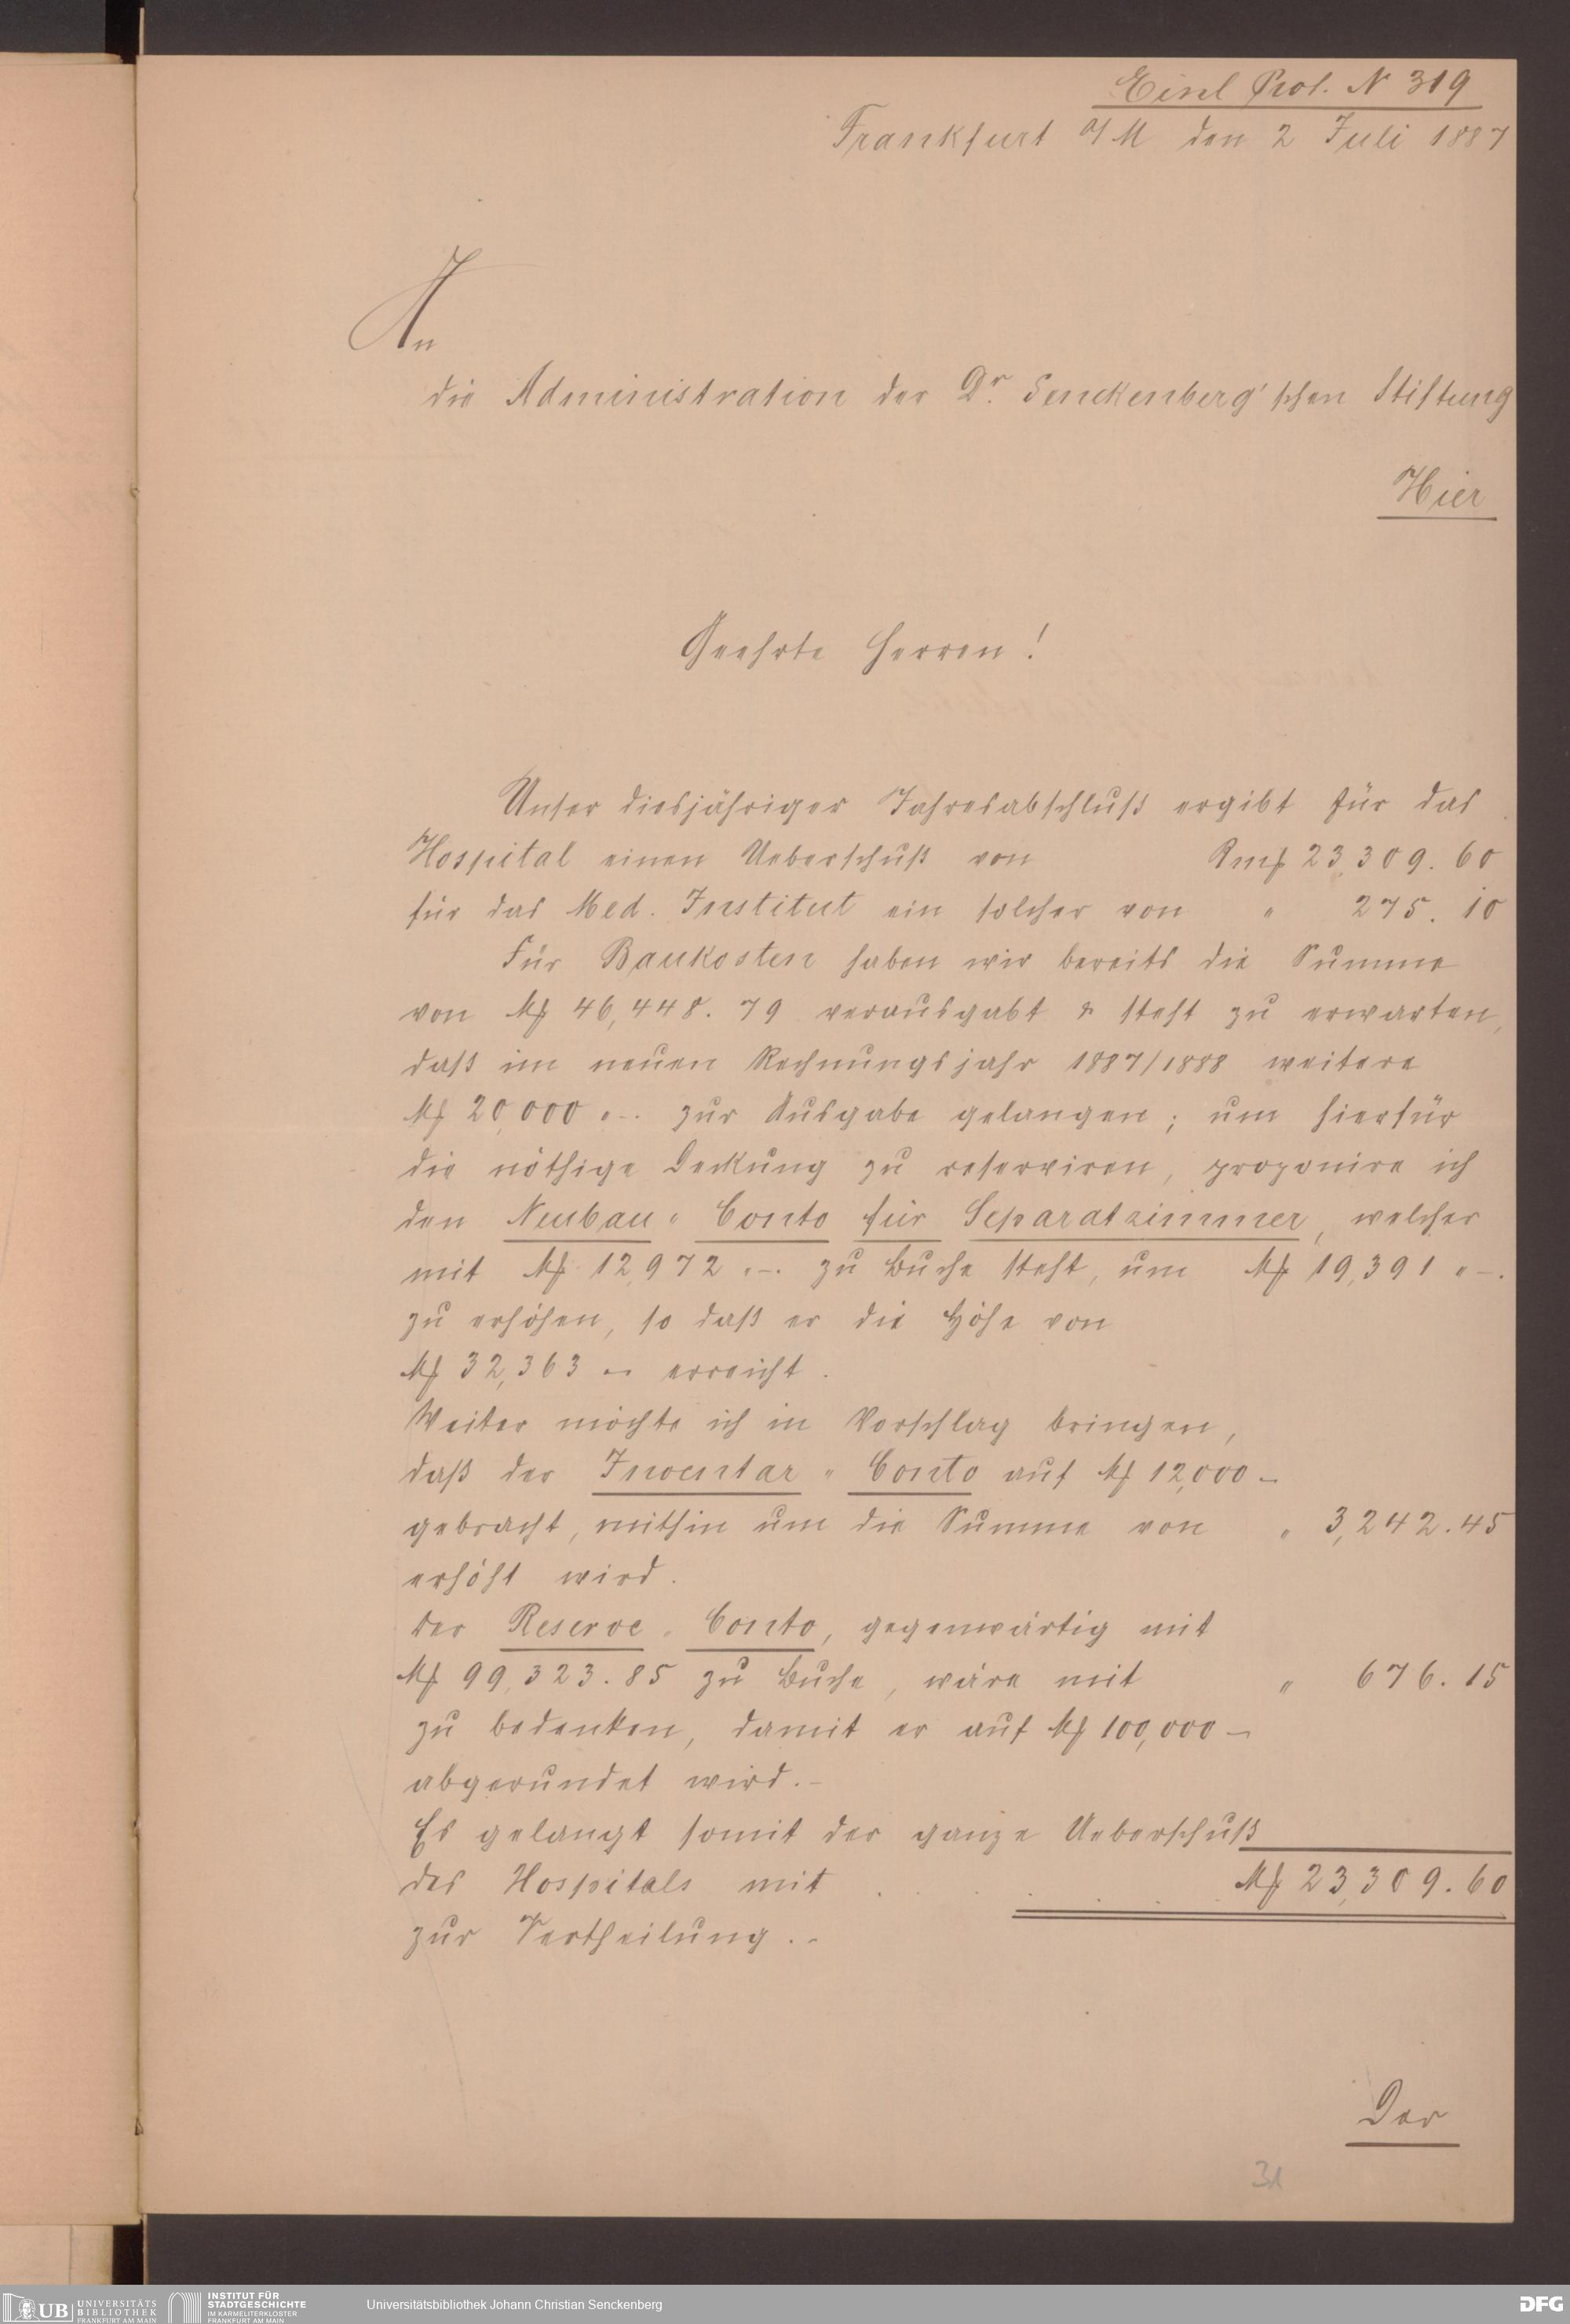 Einl Prot. N 319
Frankfurt a/M den 2 Juli 1887
An
die Administration der Dr. Senckenberg'schen Stiftung
Hier
Geehrte Herren!
Unser diesjähriger Jahresabschluß ergibt für das
Hospital einen Ueberschuß von Rmk 23,309.60
für das Med. Institut ein solcher von " 275.10
Für Baukosten haben wir bereits die Summe
von Mk 46,448.79 verausgabt & steht zu erwarten,
daß im neuen Rechnungsjahr 1887/1888 weitere
Mk 20,000 "-. zur Ausgabe gelangen; um hierfür
die nöthige Deckung zu reserviren, proponire ich
den Neubau " Conto für Separatzimmer, welcher
mit Mk 12,972 "-. zu Buche steht, um Mk 19,391 "-.
zu erhöhen, so daß er die Höhe von
Mk 32,363 "- erreicht.
Weiter möchte ich in Vorschlag bringen,
daß der Inventar " Conto auf Mk 12,000 -
gebracht, mithin um die Summe von " 3,242.45
erhöht wird.
Der Reserve " Conto, gegenwärtig mit
Mk 99,323.85 zu Buche, wäre mit " 676.15
zu bedenken, damit er auf Mk 100,000 -
abgerundet wird.-
Es gelangt somit der ganze Ueberschuß
des Hospitals mit Mk 23,309.60
zur Vertheilung.-
Der
31
UB UNIVERSITÄTS
BIBLIOTHEK
FRANKFURT AM MAIN
INSTITUT FÜR
STADTGESCHICHTE
IM KARMELITERKLOSTER
FRANKFURT AM MAIN
Universitätsbibliothek Johann Christian Senckenberg
DFG